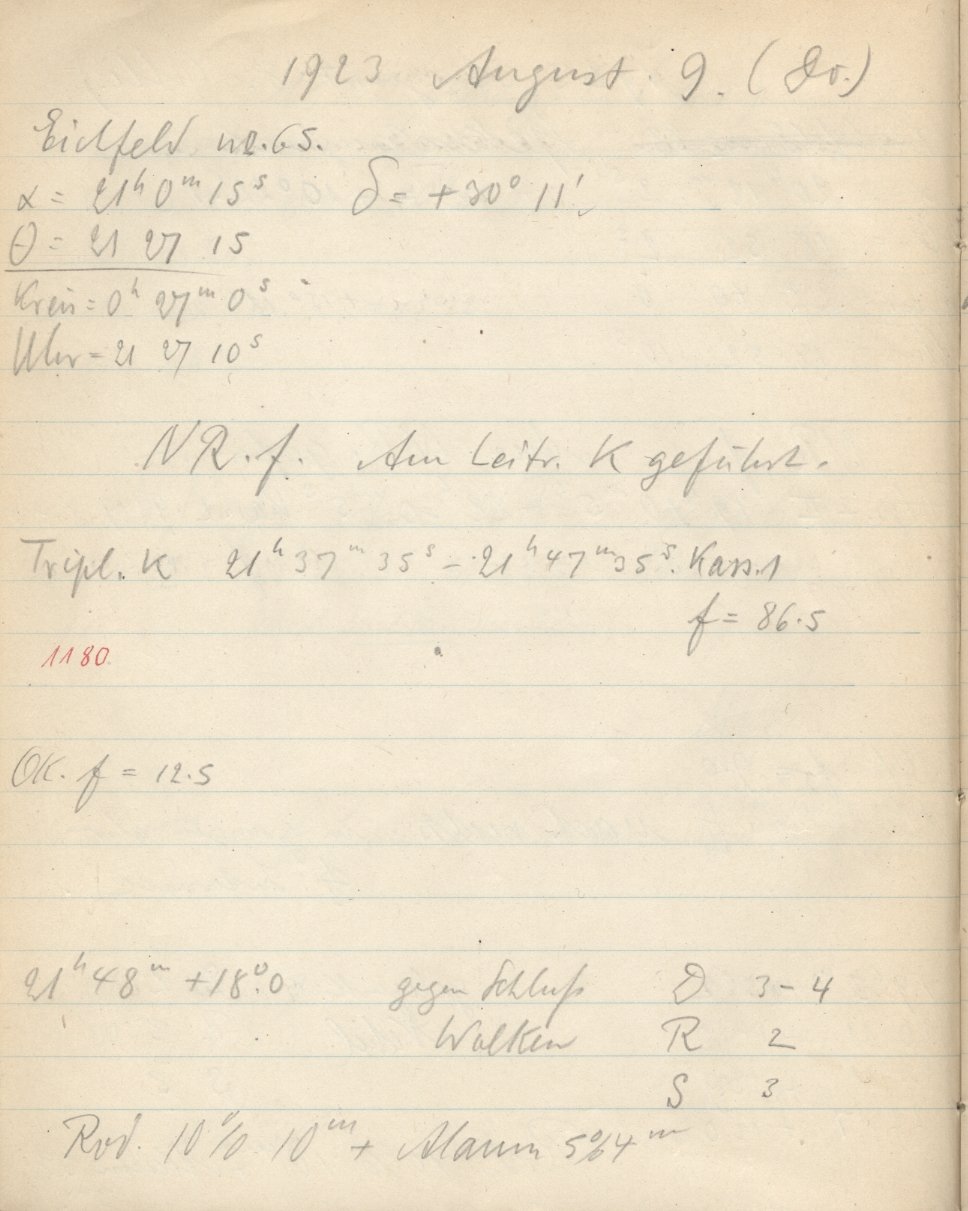 1923 August. 9. (Do.)
Eichfeld nr. 65.
α = 21ʰ 0ᵐ 15ˢ δ = +30° 11'
θ = 21 27 15
Kreis = 0ʰ 27ᵐ 0ˢ
Uhr = 21 27 10ˢ
NR. f. Am Leitr. K geführt.
Tripl. K 21ʰ 37ᵐ 35ˢ - 21ʰ 47ᵐ 35ˢ. Kass. 1
f = 86.5
1180.
OK. f = 12.5
21ʰ 48ᵐ +18°.0 gegen Schluß D 3-4
Wolken R 2
S 3
Rod. 10% 10ᵐ + Alaun 5% 4ᵐ